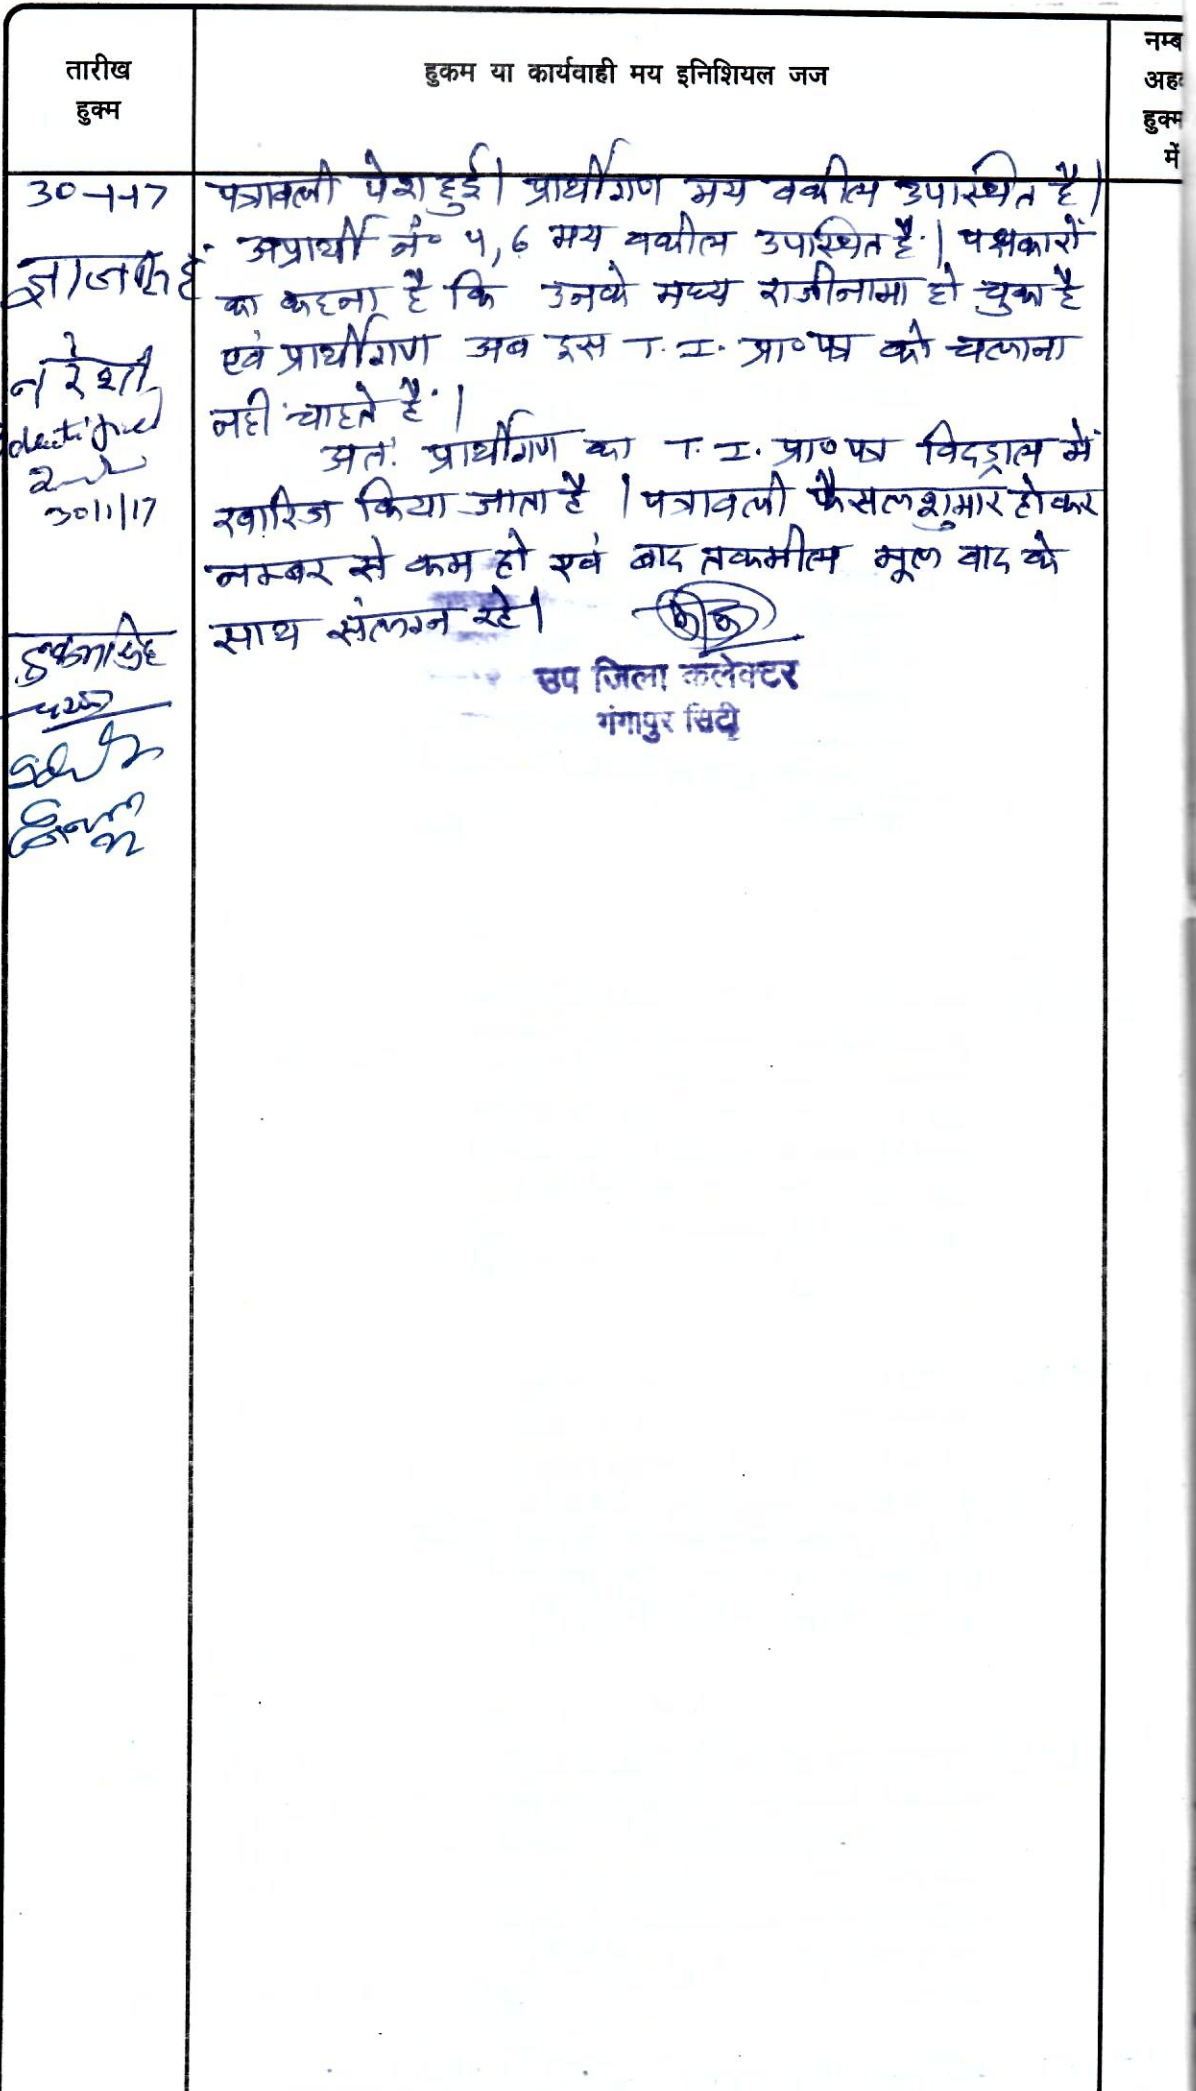 तारीख
हुक्म
हुकम या कार्यवाही मय इनिशियल जज
नम्ब
अह
हुक्म
में
30-1-17
पत्रावली पेश हुई। प्रार्थीगण मय वकील उपस्थित है।
अप्रार्थी नं० 4,6 मय वकील उपस्थित है। पक्षकारों
का कहना है कि उनके मध्य राजीनामा हो चुका है
एवं प्रार्थीगण अब इस T.I. प्रा०पत्र को चलाना
नहीं चाहते है।
अतः प्रार्थीगण का T.I. प्रा०पत्र विदड्राल में
खारिज किया जाता है। पत्रावली फैसलशुमार होकर
नम्बर से कम हो एवं बाद तकमील मूल वाद के
साथ संलग्न रहे।
उप जिला कलेक्टर
गंगापुर सिटी
नरेशी
30/1/17